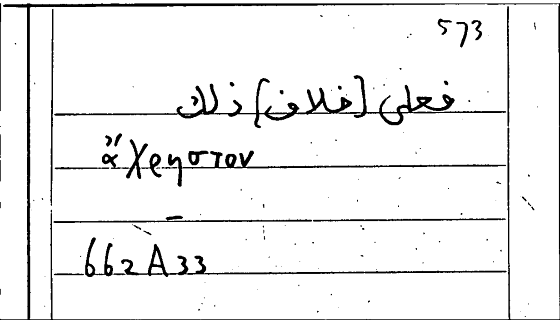 573
فعلى [خلاف] ذلك
ἄχρηστον
–
662 A 33